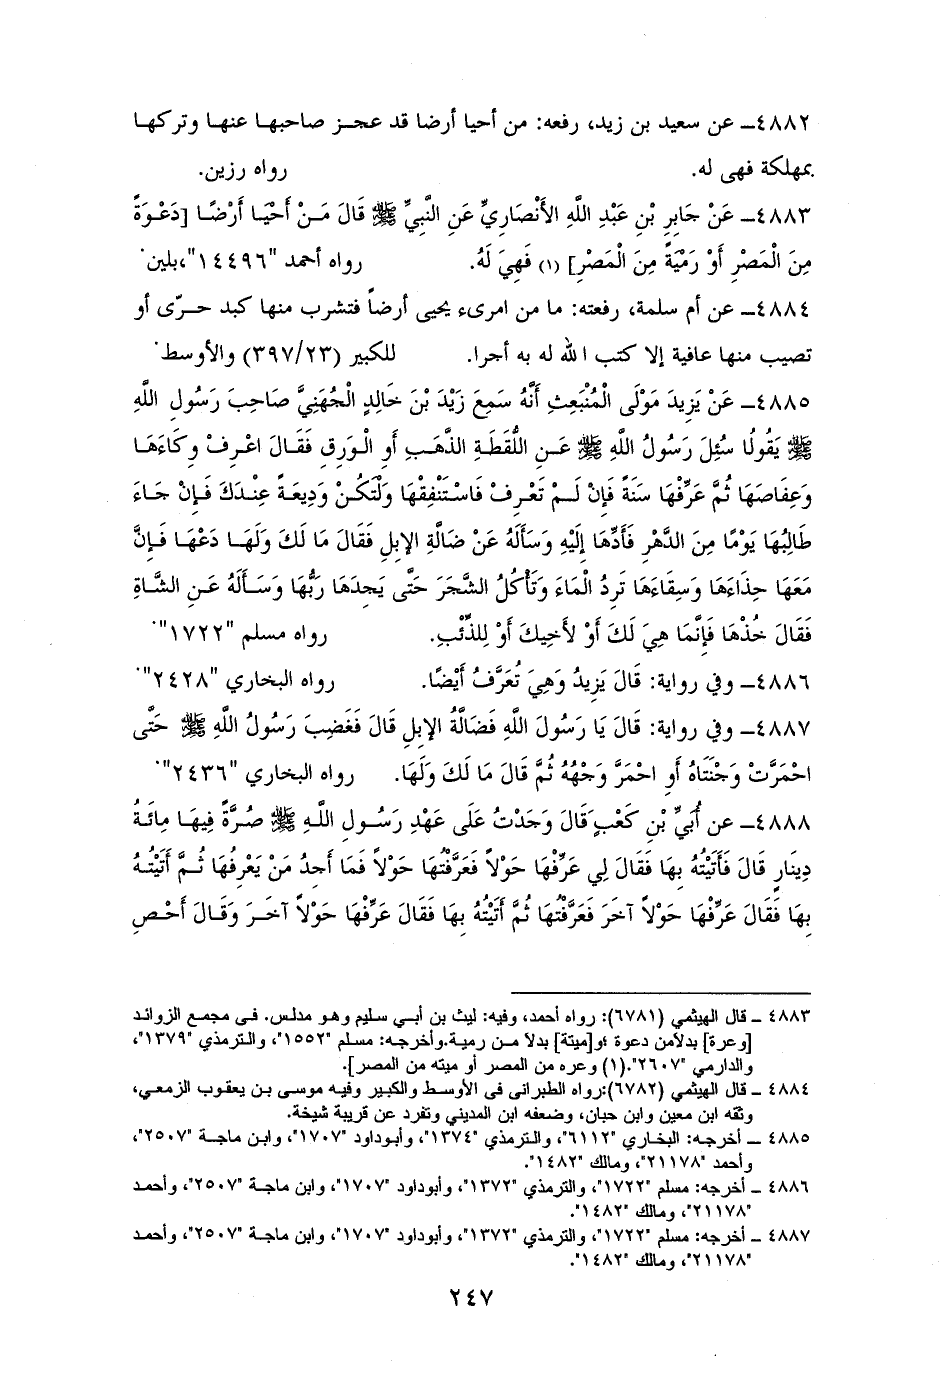 ٤٨٨٢ـ عن سعيد بن زيد، رفعه: من أحيا أرضا قد عجز صاحبها عنها وتركها
بمهلكة فهى له. رواه رزين.
٤٨٨٣ـ عَنْ جَابِرِ بْنِ عَبْدِ اللَّهِ الأَنْصَارِيِّ عَنِ النَّبِيِّ ﷺ قَالَ مَنْ أَحْيَا أَرْضًا [دَعْوَةً
مِنَ الْمَصْرِ أَوْ رَمْيَةً مِنَ الْمَصْرِ] (١) فَهِيَ لَهُ. رواه أحمد "١٤٤٩٦"،بلين.
٤٨٨٤ـ عن أم سلمة، رفعته: ما من امرىء يحيى أرضاً فتشرب منها كبد حرّى أو
تصيب منها عافية إلا كتب الله له به أجرا. للكبير (٣٩٧/٢٣) والأوسط.
٤٨٨٥ـ عَنْ يَزِيدَ مَوْلَى الْمُنْبَعِثِ أَنَّهُ سَمِعَ زَيْدَ بْنَ خَالِدٍ الْجُهَنِيَّ صَاحِبَ رَسُولِ اللَّهِ
ﷺ يَقُولُا سُئِلَ رَسُولُ اللَّهِ ﷺ عَنِ اللُّقَطَةِ الذَّهَبِ أَوِ الْوَرِقِ فَقَالَ اعْرِفْ وِكَاءَهَا
وَعِفَاصَهَا ثُمَّ عَرِّفْهَا سَنَةً فَإِنْ لَمْ تَعْرِفْ فَاسْتَنْفِقْهَا وَلْتَكُنْ وَدِيعَةً عِنْدَكَ فَإِنْ جَاءَ
طَالِبُهَا يَوْمًا مِنَ الدَّهْرِ فَأَدِّهَا إِلَيْهِ وَسَأَلَهُ عَنْ ضَالَّةِ الإِبِلِ فَقَالَ مَا لَكَ وَلَهَا دَعْهَا فَإِنَّ
مَعَهَا حِذَاءَهَا وَسِقَاءَهَا تَرِدُ الْمَاءَ وَتَأْكُلُ الشَّجَرَ حَتَّى يَجِدَهَا رَبُّهَا وَسَأَلَهُ عَنِ الشَّاةِ
فَقَالَ خُذْهَا فَإِنَّمَا هِيَ لَكَ أَوْ لأَخِيكَ أَوْ لِلذِّئْبِ. رواه مسلم "١٧٢٢".
٤٨٨٦ـ وفي رواية: قَالَ يَزِيدُ وَهِيَ تُعَرَّفُ أَيْضًا. رواه البخاري "٢٤٢٨".
٤٨٨٧ـ وفي رواية: قَالَ يَا رَسُولَ اللَّهِ فَضَالَّةُ الإِبِلِ قَالَ فَغَضِبَ رَسُولُ اللَّهِ ﷺ حَتَّى
احْمَرَّتْ وَجْنَتَاهُ أَوِ احْمَرَّ وَجْهُهُ ثُمَّ قَالَ مَا لَكَ وَلَهَا. رواه البخاري "٢٤٣٦".
٤٨٨٨ـ عن أُبَيِّ بْنِ كَعْبٍ قَالَ وَجَدْتُ عَلَى عَهْدِ رَسُولِ اللَّهِ ﷺ صُرَّةً فِيهَا مِائَةُ
دِينَارٍ قَالَ فَأَتَيْتُهُ بِهَا فَقَالَ لِي عَرِّفْهَا حَوْلاً فَعَرَّفْتُهَا حَوْلاً فَمَا أَجِدُ مَنْ يَعْرِفُهَا ثُمَّ أَتَيْتُهُ
بِهَا فَقَالَ عَرِّفْهَا حَوْلاً آخَرَ فَعَرَّفْتُهَا ثُمَّ أَتَيْتُهُ بِهَا فَقَالَ عَرِّفْهَا حَوْلاً آخَرَ وَقَالَ أَحْصِ
٤٨٨٣ ـ قال الهيثمي (٦٧٨١): رواه أحمد، وفيه: ليث بن أبي سليم وهو مدلس. فى مجمع الزوائد
[وعرة] بدلامن دعوة ؛و[ميتة] بدلا من رمية.وأخرجه: مسلم "١٥٥٢"، والترمذي "١٣٧٩"،
والدارمي "٢٦٠٧".(١) وعره من المصر أو ميته من المصر].
٤٨٨٤ ـ قال الهيثمي (٦٧٨٢):رواه الطبرانى فى الأوسط والكبير وفيه موسى بن يعقوب الزمعي،
وثقه ابن معين وابن حبان، وضعفه ابن المديني وتفرد عن قريبة شيخة.
٤٨٨٥ ـ أخرجه: البخاري "٦١١٢"، والترمذي "١٣٧٤"، وأبوداود "١٧٠٧"، وابن ماجة "٢٥٠٧"،
وأحمد "٢١١٧٨"، ومالك "١٤٨٢".
٤٨٨٦ ـ أخرجه: مسلم "١٧٢٢"، والترمذي "١٣٧٢"، وأبوداود "١٧٠٧"، وابن ماجة "٢٥٠٧"، وأحمد
"٢١١٧٨"، ومالك "١٤٨٢".
٤٨٨٧ ـ أخرجه: مسلم "١٧٢٢"، والترمذي "١٣٧٢"، وأبوداود "١٧٠٧"، وابن ماجة "٢٥٠٧"، وأحمد
"٢١١٧٨"، ومالك "١٤٨٢".
٢٤٧